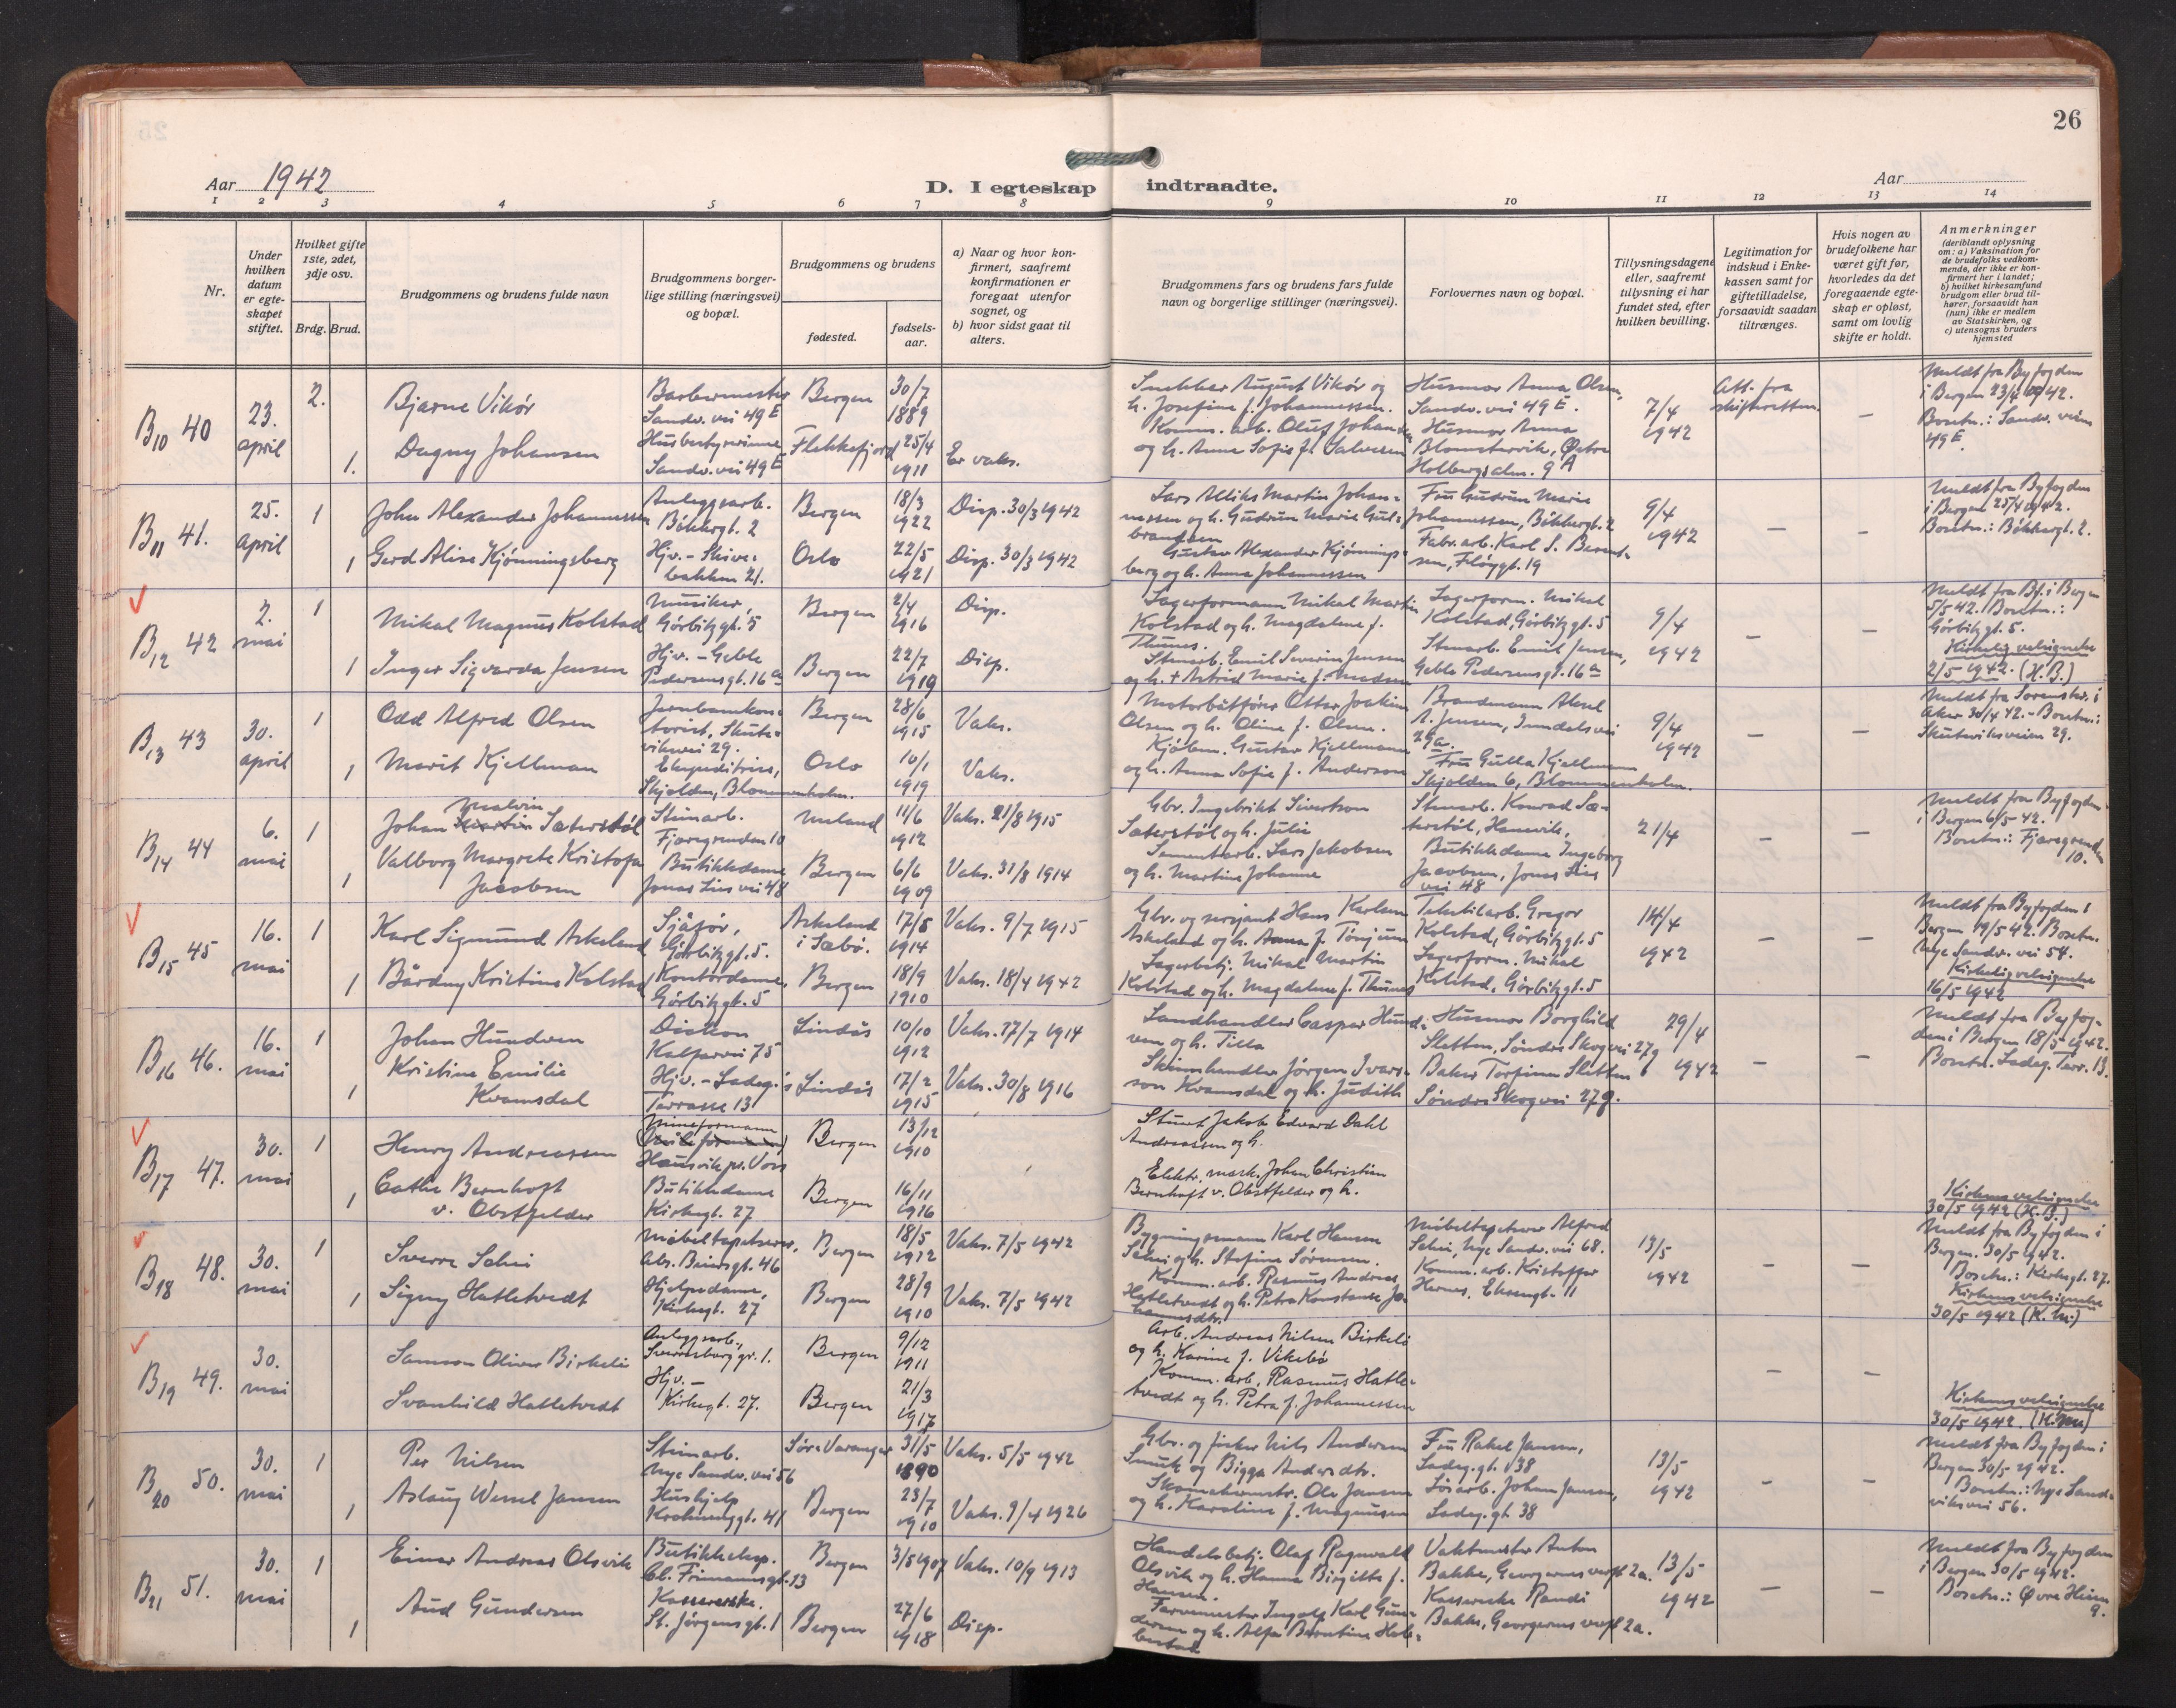 26
Aar 1942
D. I egteskap indtraadte.
Aar
1 2 3 4 5 6 7 8 9 10 11 12 13 14
Nr.
Under hvilken datum er egteskapet stiftet.
Hvilket gifte 1ste, 2det, 3dje osv.
Brdg. Brud.
Brudgommens og brudens fulde navn
Brudgommens borgerlige stilling (næringsvei) og bopæl.
Brudgommens og brudens
fødested.
fødselsaar.
a) Naar og hvor konfirmert, saafremt konfirmationen er foregaat utenfor sognet, og
b) hvor sidst gaat til alters.
Brudgommens fars og brudens fars fulde navn og borgerlige stillinger (næringsvei).
Forlovernes navn og bopæl.
Tillysningsdagene eller, saafremt tillysning ei har fundet sted, efter hvilken bevilling.
Legitimation for indskud i Enkekassen samt for giftetilladelse, forsaavidt saadan tiltrænges.
Hvis nogen av brudefolkene har været gift før, hvorledes da det foregaaende egteskap er opløst, samt om lovlig skifte er holdt.
Anmerkninger (deriblandt oplysning om: a) Vaksination for de brudefolks vedkommende, der ikke er konfirmert her i landet; b) hvilket kirkesamfund brudgom eller brud tilhører, forsaavidt han (hun) ikke er medlem av Statskirken, og c) utensogns bruders hjemsted
B10 40 23. april 2. Bjarne Vikør Barbermester Sandv. vei 49 E Bergen 30/7 1889
Snekker August Vikør og h. Josefine f. Johannessen. Husmor Anna Olsen, Sandv. vei 49 E. 7/4 1942 Att. fra skifteretten. –
Meldt fra Byfogden i Bergen 23/4 1942. Bostn.: Sandv. veien 49 E.
1. Dagny Johansen Husbestyrerinne Sandv. vei 49 E Flekkefjord 25/4 1911 Er vaks.
Komm. arb. Oluf Johansen og h. Anna Sofie f. Salvesen Husmor Anna Blomstervik, Øvre Holbergsalm. 9 A
B11 41. 25. april 1 John Alexander Johannessen Anleggsarb. Bøkkergt. 2 Bergen 18/3 1922 Disp. 30/3 1942
Lars Alliks Martin Johannessen og h. Gudrun Marie Gulbrandsen Fru Gudrun Marie Johannessen, Bøkkergt. 2 9/4 1942 – –
Meldt fra Byfogden i Bergen 25/4 1942. Bostn.: Bøkkergt. 2.
1 Gerd Alise Kjønningsberg Hjv. – Skivebakken 21. Oslo 22/5 1921 Disp. 30/3 1942
Gustav Alexander Kjønningsberg og h. Anna Johannessen Fabr. arb. Karl S. Berentsen, Fløygt. 19
B12 42 2. mai 1 Mikal Magnus Kolstad Musiker, Gørbitzgt. 5 Bergen 2/4 1916 Disp.
Lagerformann Mikal Martin Kolstad og h. Magdalene f. Thunes. Lagerform. Mikal Kolstad, Gørbitzgt. 5 9/4 1942 – –
Meldt fra Bf. i Bergen 5/5 42. Bostn.: Gørbitzgt. 5. Kirkelig velsignelse 2/5 1942. (H.B.)
1 Inger Sigvarda Jensen Hjv. – Geble Pedersensgt. 16 a Bergen 22/7 1919 Disp.
Stenarb. Emil Severin Jensen og h. † Astrid Marie f. Madsen Stenarb. Emil Jensen, Geble Pedersensgt. 16 a
B13 43 30. april 1 Odd Alfred Olsen Jernbanekontorist, Skutevikvei 29. Bergen 28/6 1915 Vaks.
Motorbåtfører Ottar Joakim Olsen og h. Oline f. Olsen. Brandmann Aksel A. Jensen, Inndalsvei 29 a. 9/4 1942 – –
Meldt fra Sorenskr. i Aker 30/4 42. – Bostn.: Skuteviksveien 29.
1 Marit Kjellman Ekspeditrise, Skjolden, Blommenholm. Oslo 10/1 1919 Vaks.
Kjøbm. Gustav Kjellmann og h. Anna Sofie f. Anderson Fru Gulla Kjellmann Skjolden 6, Blommenholm.
B14 44 6. mai 1 Johan Malvin Martin Sæterstøl Stenarb. Fjæregrenden 10 Meland 11/6 1912 Vaks. 21/8 1915
Gbr. Ingebrikt Sivertson Sæterstøl og h. Julie Stenarb. Konrad Sæterstøl, Hanevik, 21/4 – –
Meldt fra Byfogden i Bergen 6/5 42. Bostn.: Fjæregrenden 10.
1 Valborg Margrete Kristofa Jacobsen Butikkdame Jonas Lies vei 48 Bergen 6/6 1909 Vaks. 31/8 1914
Sementarb. Lars Jakobsen og h. Martine Johanne Butikkdame Ingeborg Jacobsen, Jonas Lies vei 48
B15 45 16. mai 1 Karl Sigmund Askeland Sjåfør, Gørbitzgt. 5. Askeland i Sæbø. 17/8 1914 Vaks. 9/7 1915
Gbr. og sersjant Hans Karlsen Askeland og h. Anna f. Tønjum Tekstilarb. Gregor Kolstad, Gørbitzgt. 5 14/4 1942 – –
Meldt fra Byfogden i Bergen 19/5 42. Bostn. Nye Sandv. vei 54. Kirkelig velsignelse 16/5 1942
1 Bårdny Kristine Kolstad Kontordame, Gørbitzgt. 5 Bergen 18/9 1910 Vaks. 18/4 1942
Lagerbetj. Mikal Martin Kolstad og h. Magdalene f. Thunes Lagerform. Mikal Kolstad, Gørbitzgt. 5
B16 46. 16. mai 1 Johan Hundven Diakon Kalfarvei 75 Lindås 10/10 1912 Vaks. 17/7 1914
Landhandler Casper Hundven og h. Tilla Husmor Borghild Sletten, Søndre Skogvei 27 g 29/4 1942 – –
Meldt fra Byfogden i Bergen 18/5 1942. Bostn. Ladeg. Terr. 13.
1 Kristine Emilie Kvamsdal Hjv. – Ladeg.'s Terrasse 13 Lindås 17/2 1915 Vaks. 30/8 1916
Skinnhandler Jørgen Ivarsson Kvamsdal og h. Judith Baker Torfinn Sletten Søndre Skogvei 27 g.
B17 47. 30. mai 1 Henry Andreassen Mineformann Bergen 13/12 1910
Stuert Jakob Edvard Dahl Andreassen og h.
1 Cathe Bernhoft v. Obstfelder Butikkdame Kirkegt. 27 Bergen 16/11 1916
Elektr. mask. Johan Christian Bernhoft v. Obstfelder og h.
Kirkens velsignelse 30/5 1942 (H.B.)
B18 48. 30. mai 1 Sverre Schei Møbeltapetserer, Abs. Beiersgt. 46 Bergen 18/5 1912 Vaks. 7/5 1942
Bygningsmann Karl Hansen Schei og h. Stefine Sørensen. Møbeltapetserer Alfred Schei, Nye Sandv. vei 68. 13/5 1942 – –
Meldt fra Byfogden i Bergen. 30/5 1942. Bostn.: Kirkegt. 27. Kirkens velsignelse 30/5 1942 (K.M.)
1 Signy Hatletvedt Hjelpedame, Kirkegt. 27 Bergen 28/9 1910 Vaks. 7/5 1942
Komm. arb. Rasmus Andreas Hatletvedt og h. Petra Konstanse Johannesdtr. Komm. arb. Kristoffer Hernes, Eksengt. 11
B19 49. 30. mai Samson Oliver Birkeli Anleggsarb., Sverresborg gr. 1. Bergen 9/12 1911
Arb. Andreas Nilsen Birkeli og h. Karine f. Vikebø – –
Svanhild Hatletvedt Hjv. – Kirkegt. 27. Bergen 21/3 1917
Komm. arb. Rasmus Hatletvedt og h. Petra f. Johannessen
Kirkens velsignelse 30/5 1942.
B20 50. 30. mai 1 Per Nilsen Stenarb. Nye Sandv. vei 56 Sør-Varanger 31/5 1890 Vaks. 5/5 1942
Gbr. og fisker Nils Andersen Smuk og Bigga Andersdtr. Fru Rakel Jansen, Ladeg. gt. 38 13/5 1942 – –
Meldt fra Byfogden i Bergen 30/5 1942. Bostn.: Nye Sandviksvei 56.
1 Aslaug Wessel Jansen Hushjelp Krohnenggt. 41 Bergen 23/7 1910 Vaks. 9/4 1926
Skomakermstr. Ole Jansen og h. Karoline f. Magnussen Løsarb. Johan Jansen, Ladeg. gt 38
B21 51. 30. mai 1 Einar Andreas Olsvik Butikkeksp. Cl. Frimannsgt. 13 Bergen 3/5 1907 Vaks. 10/9 1913
Handelsbetj. Olaf Ragnvald Olsvik og h. Hanna Birgitte f. Hansen. Vaktmester Anton Bakke, Georgernes verft 2a. 13/5 1942 – –
Meldt fra Byfogden i Bergen 30/5 1942. Bostn.: Øvre Hisen 9.
1 Aud Gundersen Kassererske. St. Jørgensgt. 1 Bergen 27/6 1918 Disp.
Farvemester Ingolf Karl Gundersen og h. Alfa Berntine Kassererske Randi Bakke, Georgernes verft 2a.